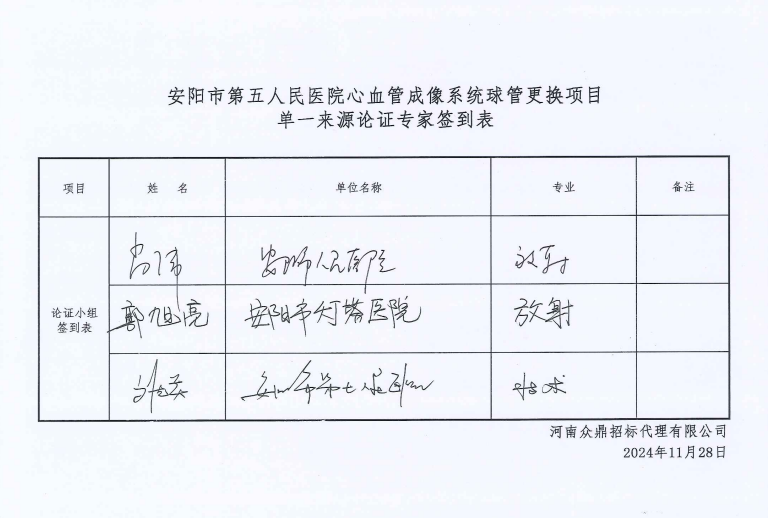 安阳市第五人民医院心血管成像系统球管更换项目
单一来源论证专家签到表
项目 姓 名 单位名称 专业 备注
安阳市人民医院 放射
论证小组
签到表
郭旭亮 安阳市灯塔医院 放射
技术
河南众鼎招标代理有限公司
2024年11月28日